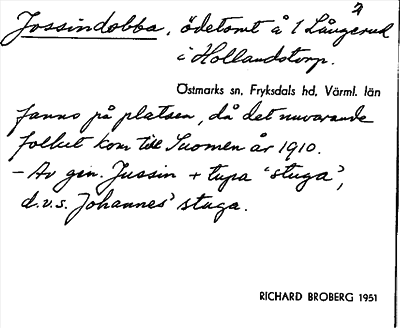 Jossindobba, ödetomt å 1 Långerud 2
i Hollandstorp.
Östmarks sn, Fryksdals hd, Värml. län
fanns på platsen, då det nuvarande
folket kom till Suomen år 1910.
– Av gen. Jussin + tupa 'stuga',
d.v.s. Johannes' stuga.
RICHARD BROBERG 1951